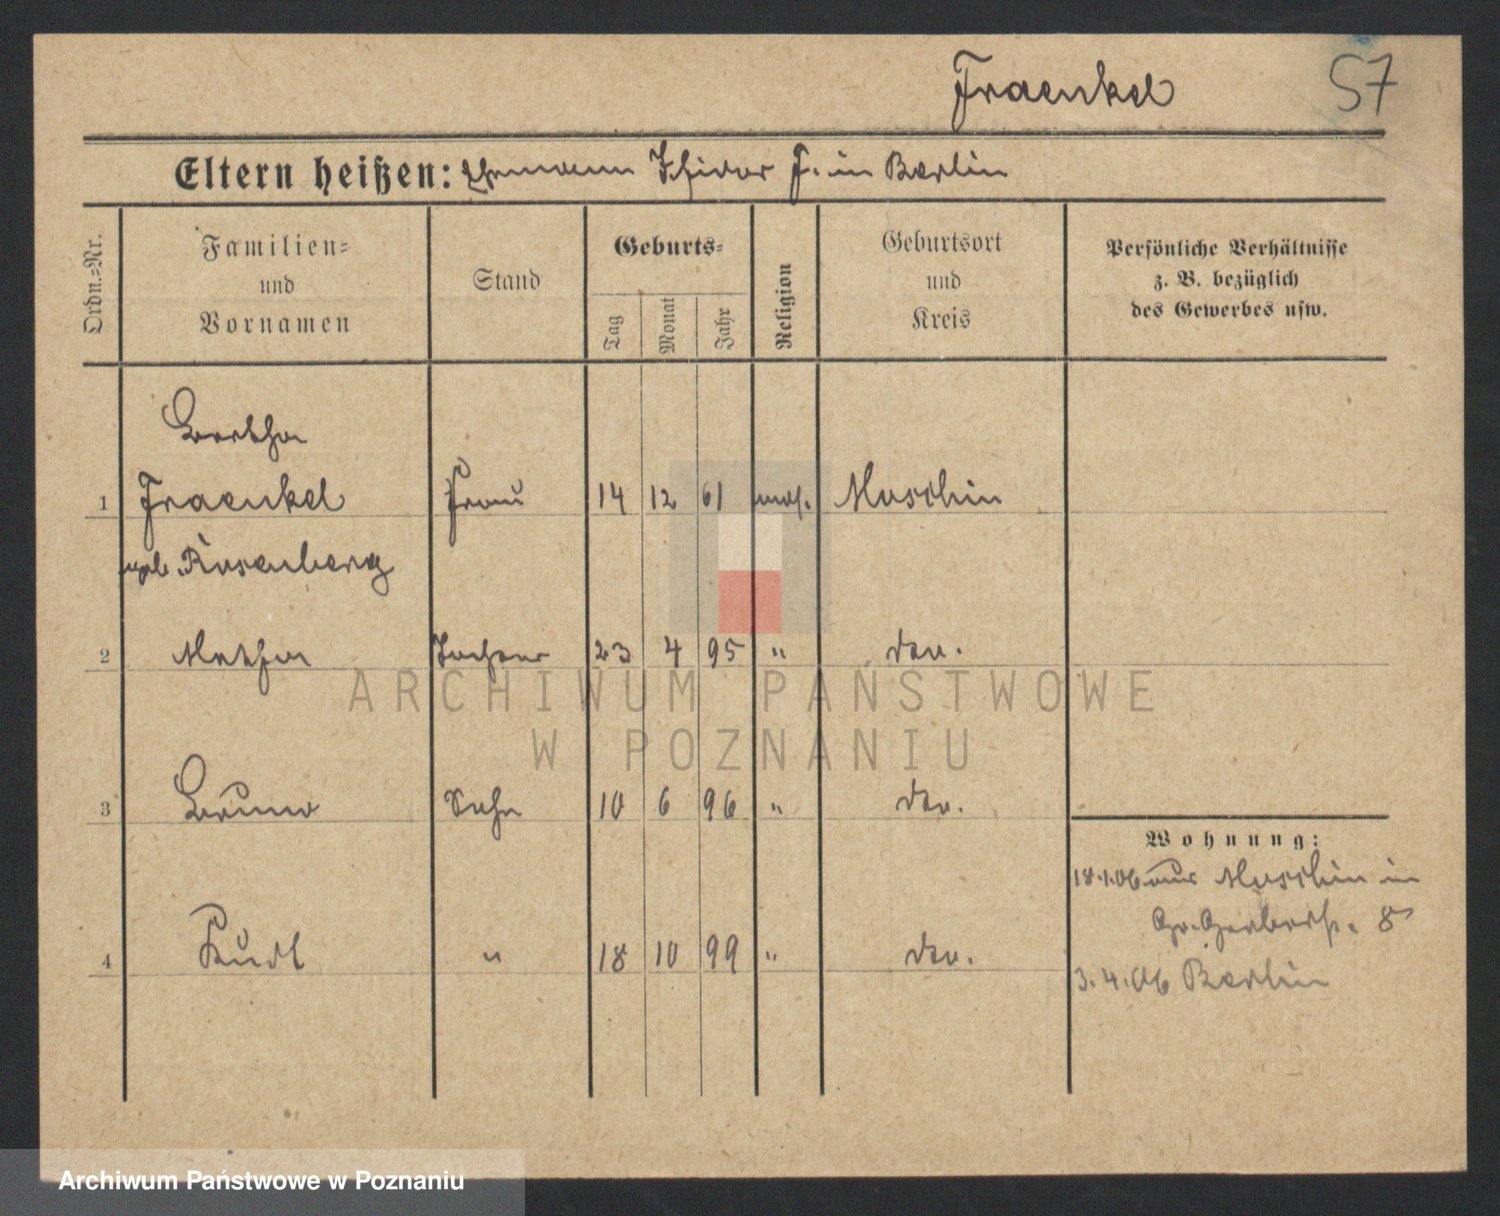 Fraenkel 57
Eltern heißen: Ehemann Isidor F. in Berlin
Ordn.-Nr.
Familien-
und
Vornamen
Stand
Geburts-
Tag
Monat
Jahr
Religion
Geburtsort
und
Kreis
Persönliche Verhältnisse
z. B. bezüglich
des Gewerbes usw.
Bertha
1 Fraenkel Frau 14 12 61 mos. Moschin
geb. Rosenberg
2 Martha Tochter 23 4 95 " do.
3 Bruno Sohn 10 6 96 " do.
Wohnung:
18.1.06 aus Moschin in
Gr. Gerberstr. 8
4 Kurt " 18 10 99 " do.
3.4.06 Berlin
ARCHIWUM PAŃSTWOWE
W POZNANIU
Archiwum Państwowe w Poznaniu